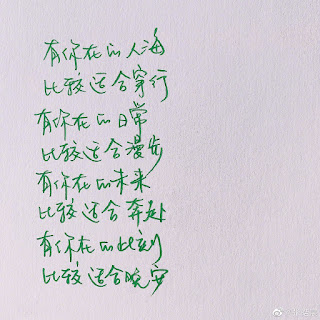 有你在的人海
比较适合穿行
有你在的日常
比较适合漫步
有你在的未来
比较适合奔赴
有你在的此刻
比较适合晚安